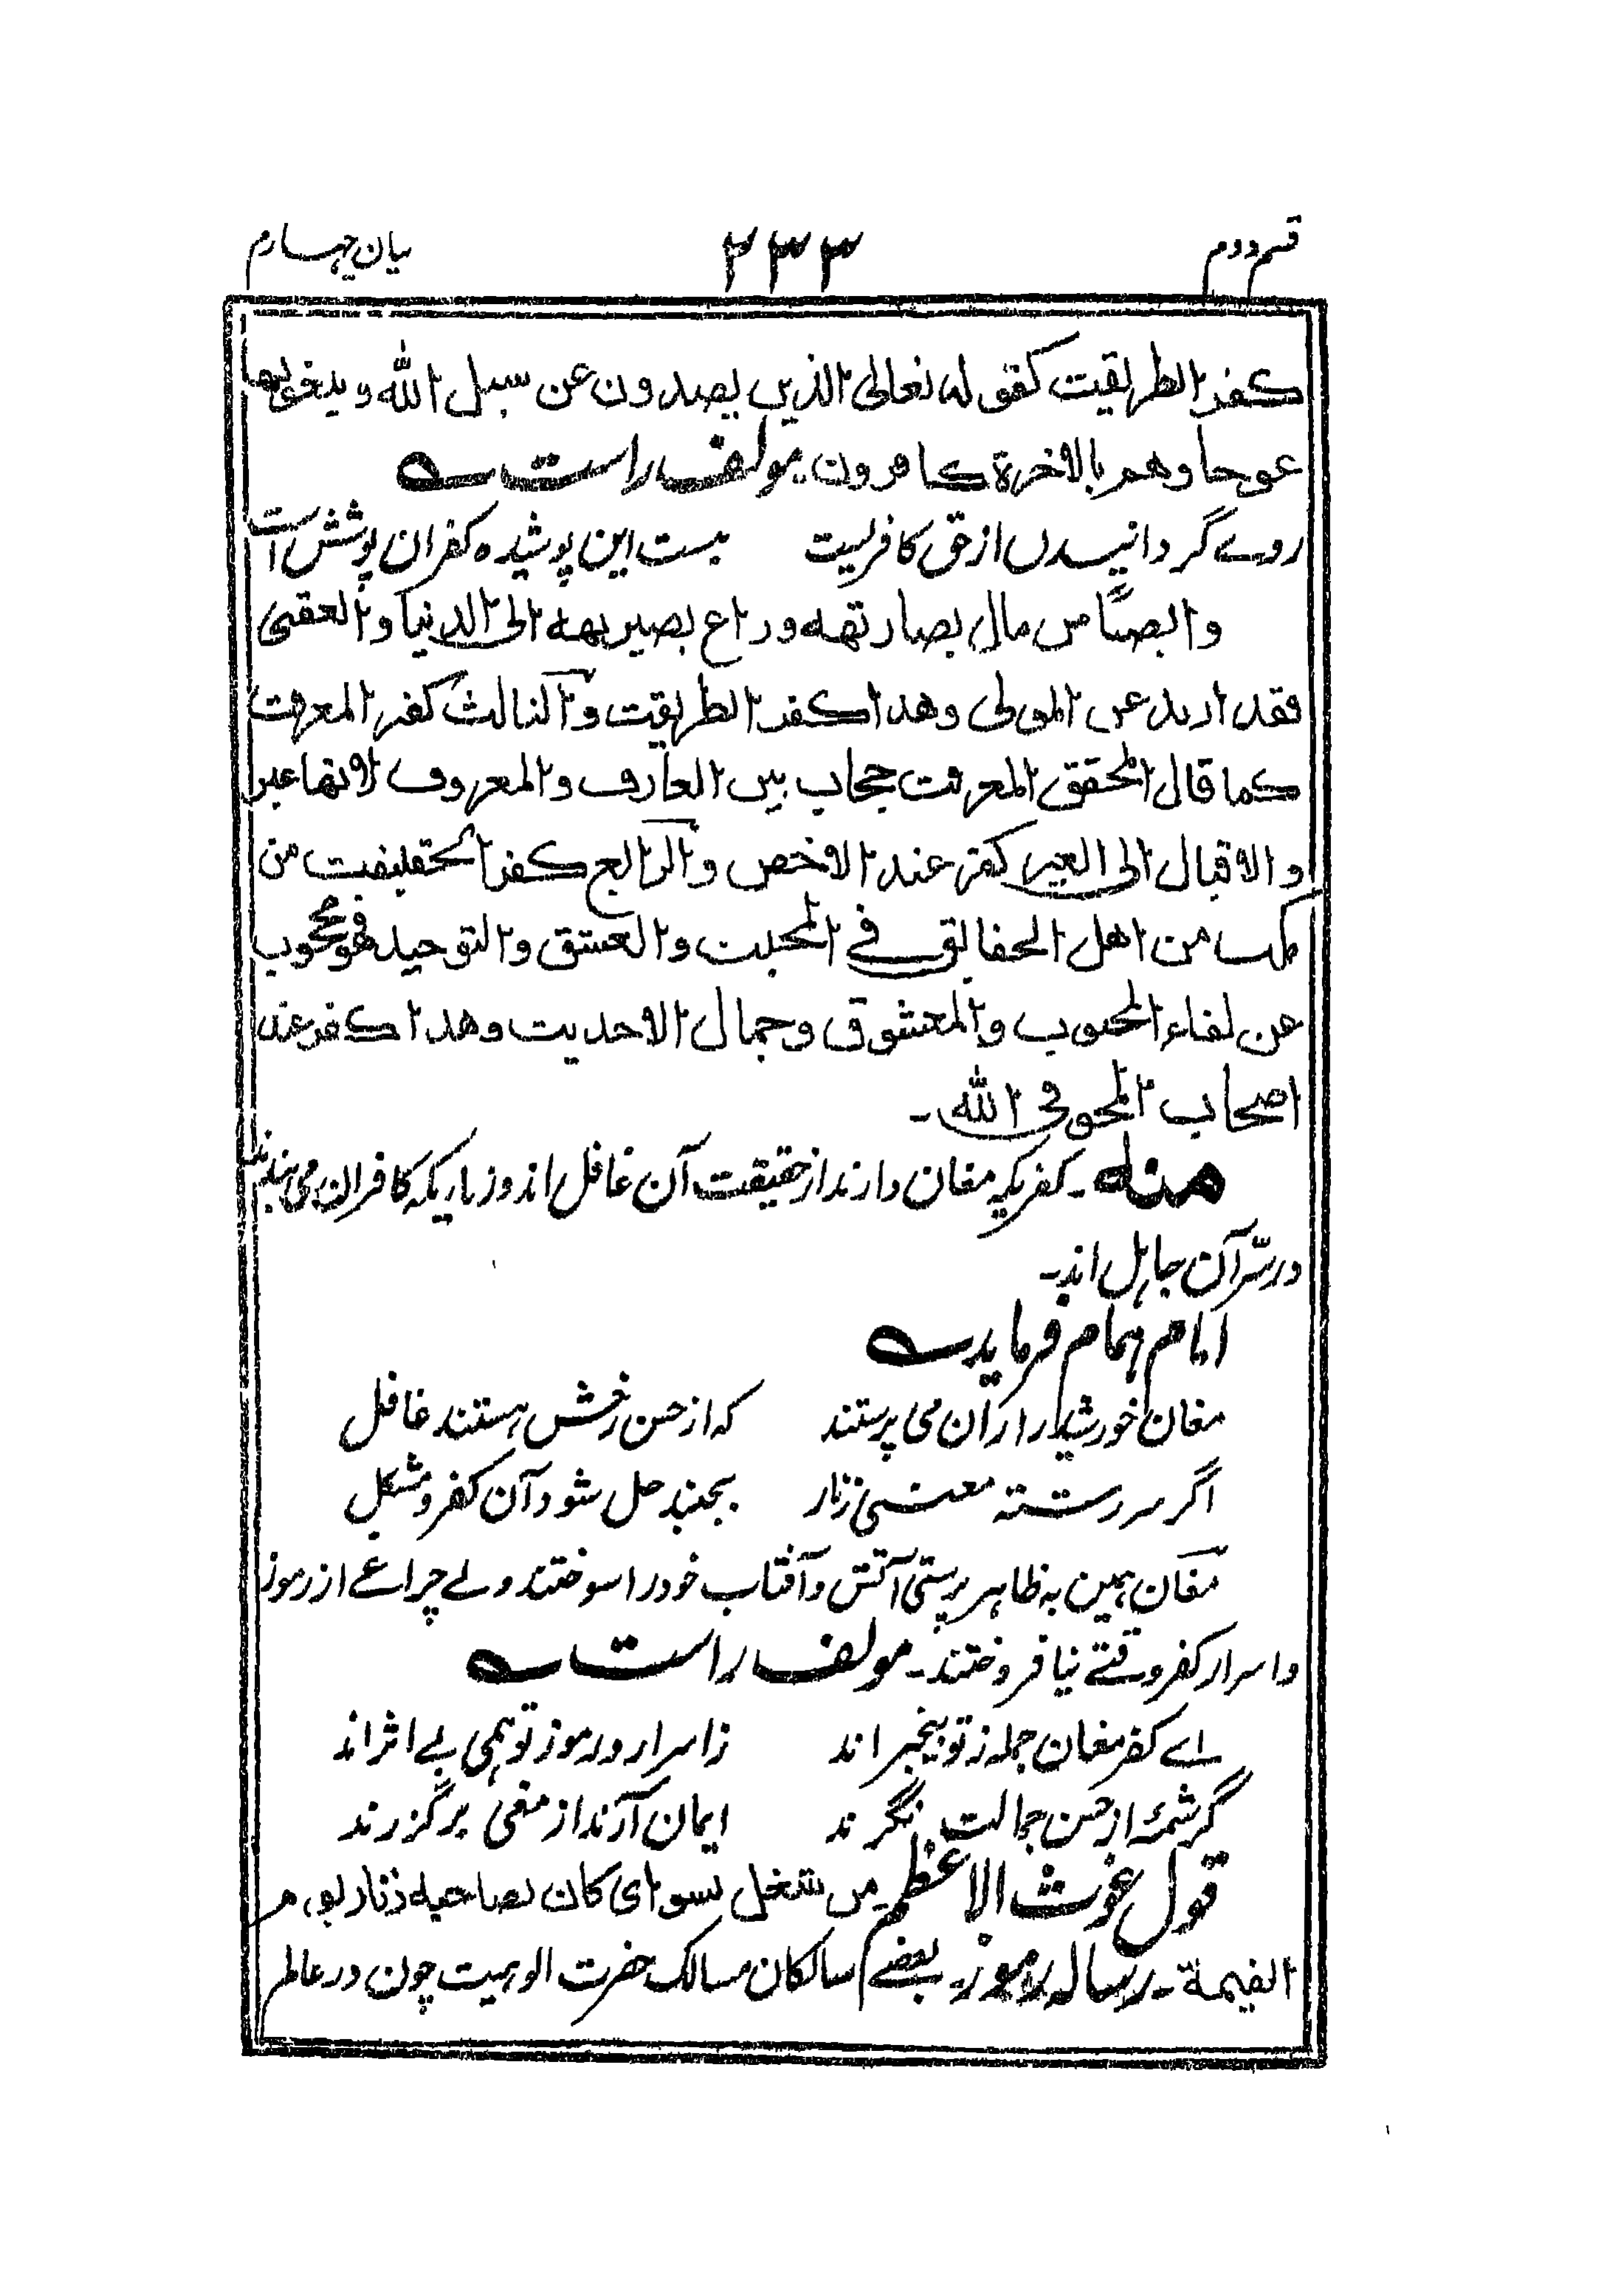 قسم دوم ۳۳۳ بیان چهارم
کفر الطریقت کقوله تعالی الذین یصدون عن سبیل الله و یبغونها
عوجا وهم بالاخرة کافرون. مولف راست ے
روے گردانیدن از حق کافریست هست این پوشیده کفران پوشش است
و ایضًا من مال بصارته وراغ بصیرته الی الدنیا و العقبی
فقد ارتد عن المولی وهذا کفر الطریقت و الثالث کفر المعرفت
کما قال المحقق المعرفت حجاب بین العارف و المعروف لانها غیر
و الاقبال الی الغیر کفر عند الاخص و الرابع کفر الحقیقت من
من اهل الحقائق فی المحبت و العشق و التوحید فهو محجوب
عن لقاء المحبوب و المعشوق و جمال الاحدیت وهذا کفر عند
اصحاب المحو فی الله۔
منه۔ کفریکه مغان دارند از حقیقت آن غافل اند و زناریکه کافران می بندند
در سرّ آن جاهل اند۔
امام همام فرماید ے
مغان خورشید را زان می پرستند که از حسن رخش هستند غافل
اگر سر رشته معنی زنار بجنبد حل شود آن کفر و مشکل
مغان همین به ظاهر پرستی آتش و آفتاب خود را سوختند ولے چراغے از رموز
و اسرار کفر وقتے نیافروختند۔ مولف راست ے
اے کفر مغان جمله ز تو بیخبر اند ز اسرار و رموز تو همی بے اثر اند
گر شمهٔ از حسن جمالت نگرند ایمان آرند از مغی برگزرند
قول غوث الاعظم من شغل بسوای کان لصاحبه زنار یوم
القیمة۔ رساله رموز۔ بعضے سالکان مسالک حضرت الوهیت چون در عالم